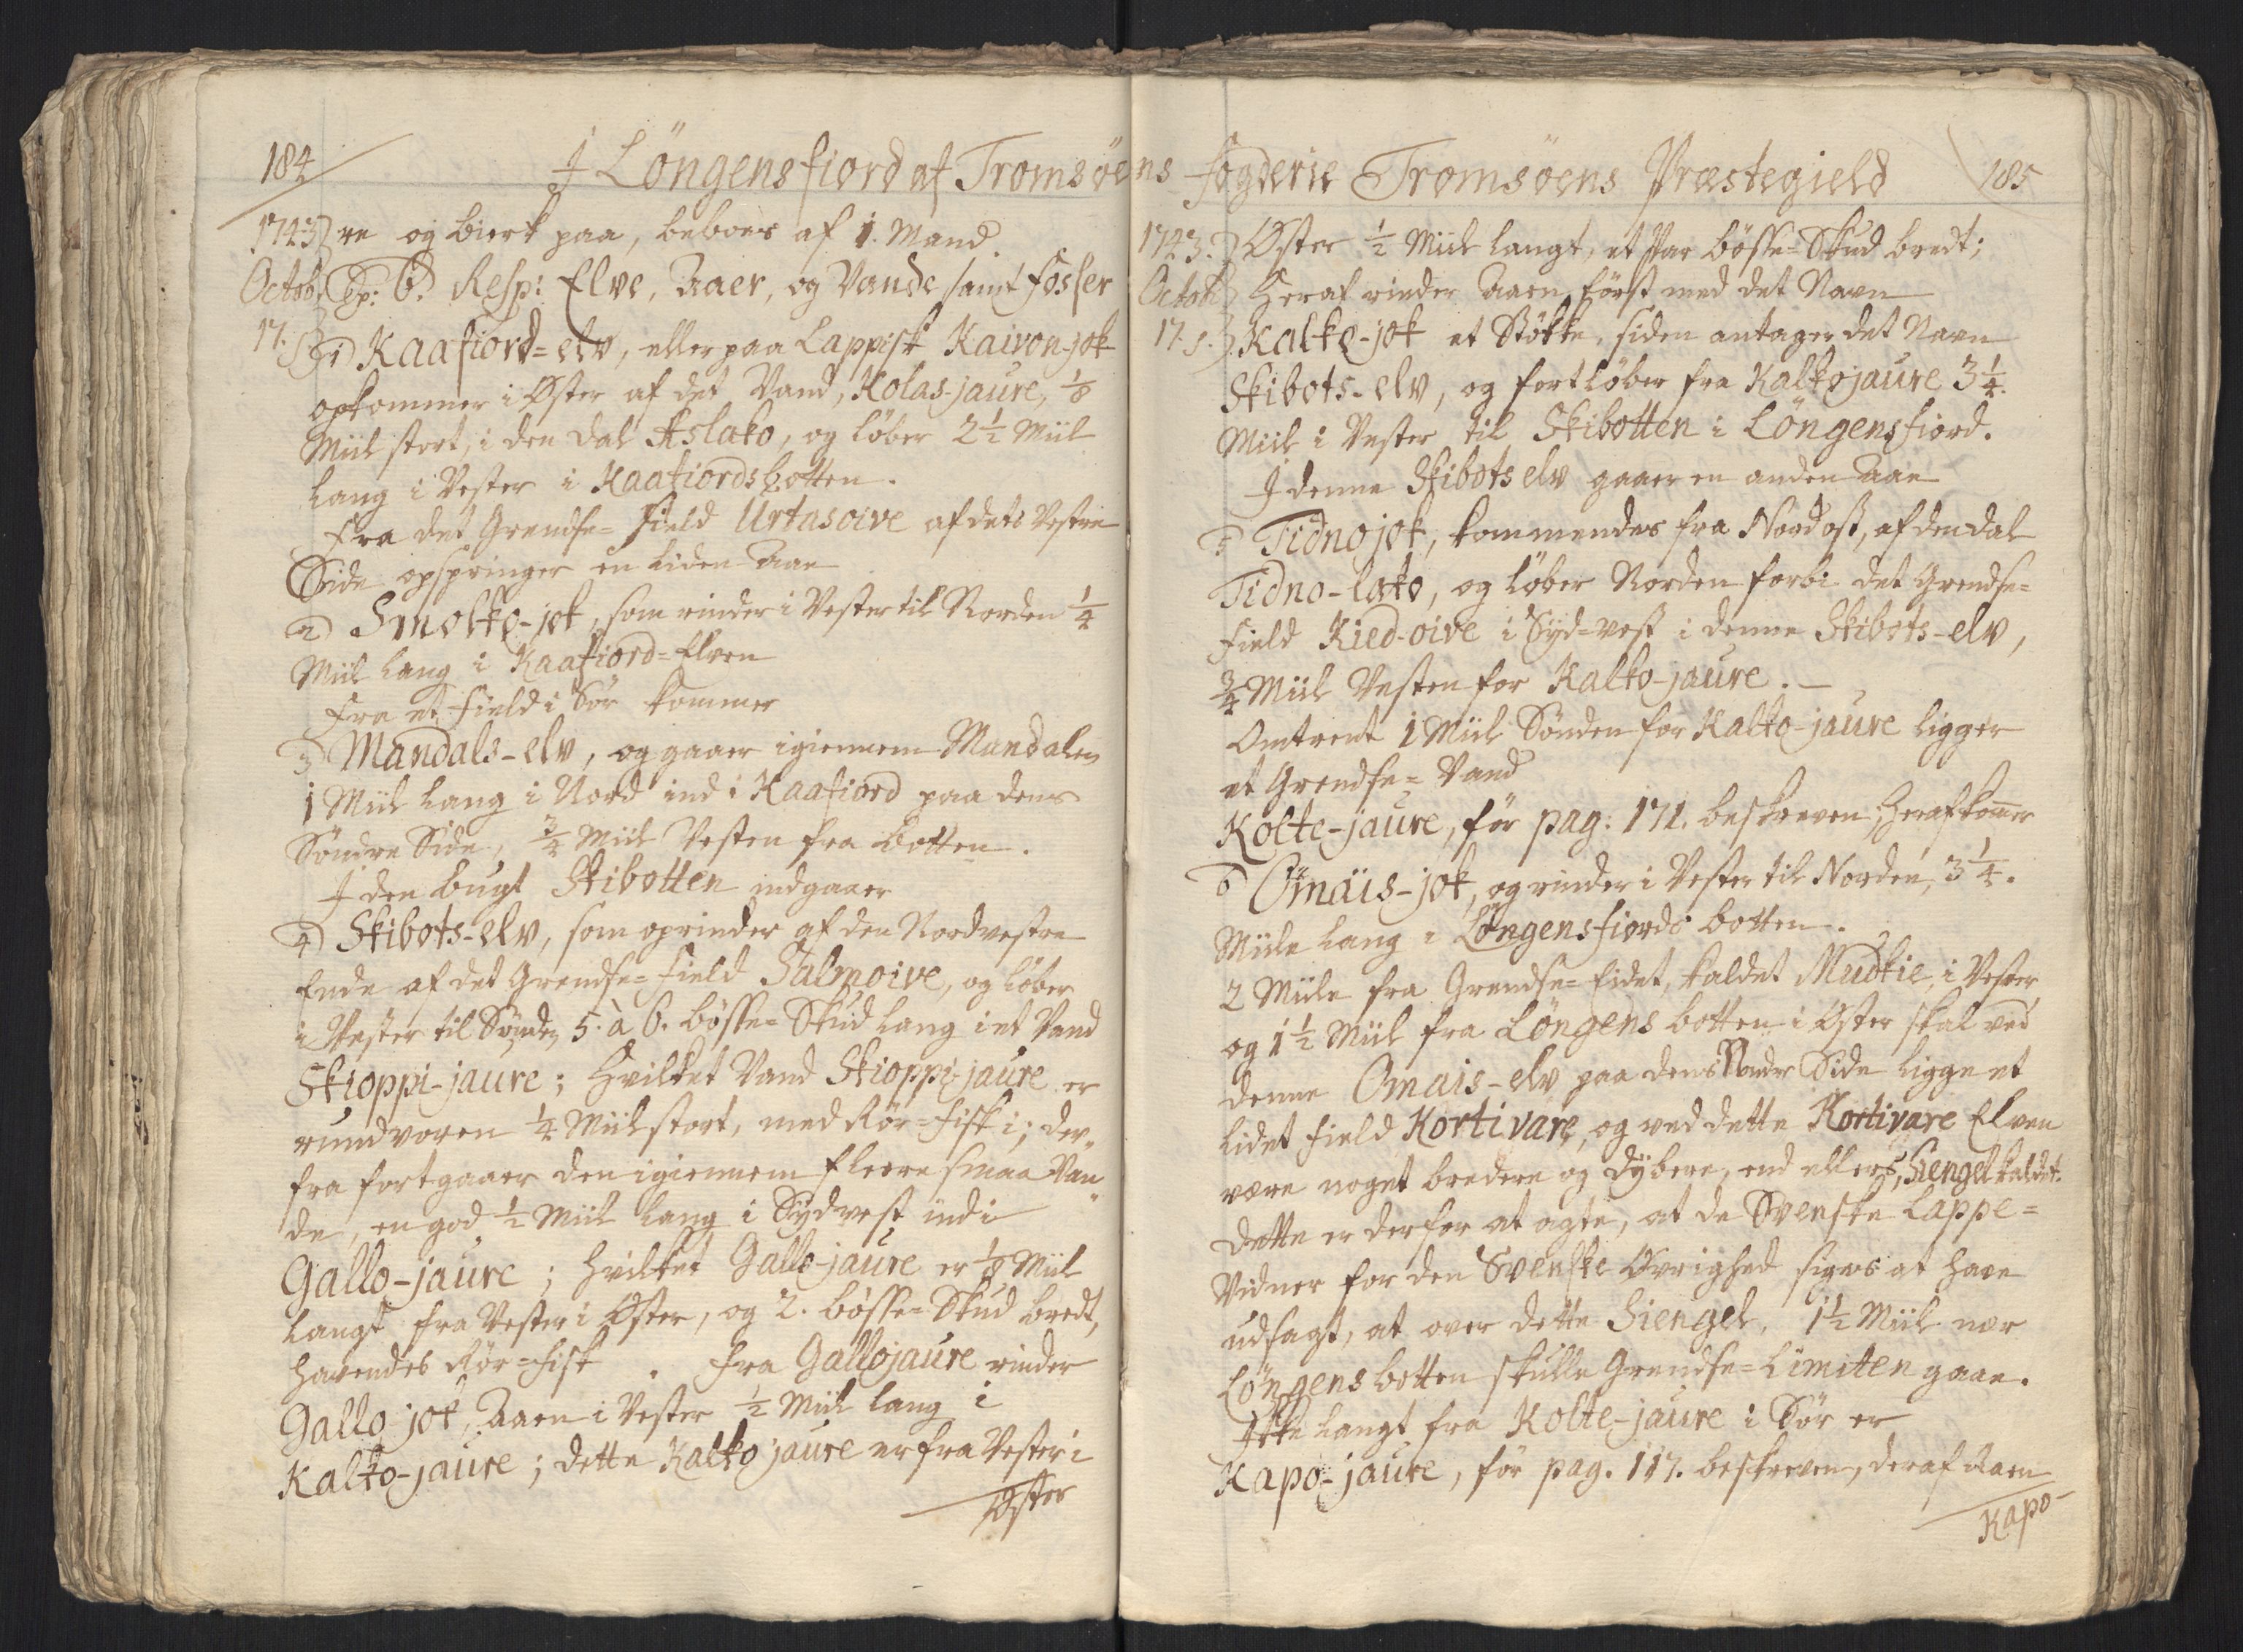 184
I Löngensfiord af Tromsöens Fogderie Tromsöens Præstegield
185
1743 re og birk paa, beboes af 1. Mand
Octob: Sp: 6. Resp: Elve, Aaer, og Vande samt fosser
17. S. 1) Kaafiord=elv, eller paa Lappisk Kaivon-jok
opkommer i Øster af det Vand, Kolas-jaure, 1/8
Miil stort, i den dal Aslako, og löber 2 1/2 Miil
lang i Vester i Kaafiordsbotten.
Fra det Grendse=Field Urtasoive af dets Vestre
Side opspringer en liden Aae
2) Smolko-jok, som rinder i Vester til Norden 1/4
Miil lang i Kaafiord=Elven
Fra et Field i Sör kommer
3) Mandals-elv, og gaaer igiennem Mandalen
1 Miil lang i Nord ind i Kaafiord paa dens
Söndre Side, 3/4 Miil Vesten fra botten.
I den bugt Skibotten indgaaer
4) Skibots-elv, som oprinder af den Nordvestre
Ende af det Grendse=Field Salmoive, og löber
i Vester til Sönden 5. à 6. bösse=Skud lang i et Vand
Skioppi-jaure; Hvilket Vand Skioppi-jaure er
rundvoren 1/4 Miil stort, med Rör=Fisk i; der„
fra fortgaaer den igiennem fleere smaa Van„
de, en god 1/2 Miil lang i Sydvest ind i
Gallo-jaure; hvilket Gallo-jaure er 1/8 Miil
langt fra Vester i Øster, og 2. bösse=Skud bredt,
havendes Rör=Fisk. Fra Gallojaure rinder
Gallo jok, Aaen i Vester 1/2 Miil lang i
Kalko-jaure; dette Kalko jaure er fra Vester i
Øster
1743. Øster 1/2 Miil langt, et Par bösse=Skud bredt;
Octob: Heraf rinder Aaen först med det Navn
17. S. Kalko-jok et Stökke, siden antager det Navn
Skibots-elv, og fortlöber fra Kalkojaure 3 1/4.
Miil i Vester til Skibotten i Löngensfiord.
I denne Skibots elv gaaer en anden Aae
5 Tidnojok, kommendes fra Nordost, af den dal
Tidno-lako, og löber Norden forbi det Grendse=
Field Kied-oive i Syd=vest i denne Skibots-elv,
3/4 Miil Vesten for Kalko-jaure.
Omtrent 1 Miil Sönden for Kalko-jaure ligger
et Grendse=Vand
Kolte-jaure, för pag: 171. beskreven; heraf komer
6 Omais-jok, og rinder i Vester til Norden, 3 1/4.
Miile lang i Löngensfiords botten.
2 Miile fra Grendse=Eidet, kaldet Mudkie, i Vester
og 1 1/2 Miil fra Löngens botten i Øster skal ved
denne Omais-elv paa dens Side ligge et
lidet Field Kortivare, og ved dette Kortivare Elven
være noget bredere og dybere, end ellers, Siengel kaldet.
dette er derfor at agte, at de Svenske Lappe=
Vidner for den Svenske Øvrighed siges at have
udsagt, at over dette Siengel, 1 1/2 Miil nær
Löngens botten skulle Grendse=Limiten gaae.
Ikke langt fra Kolte-jaure i Sör er
Kapo-jaure, för pag. 117. beskreven, deraf Aaen
Kapo-